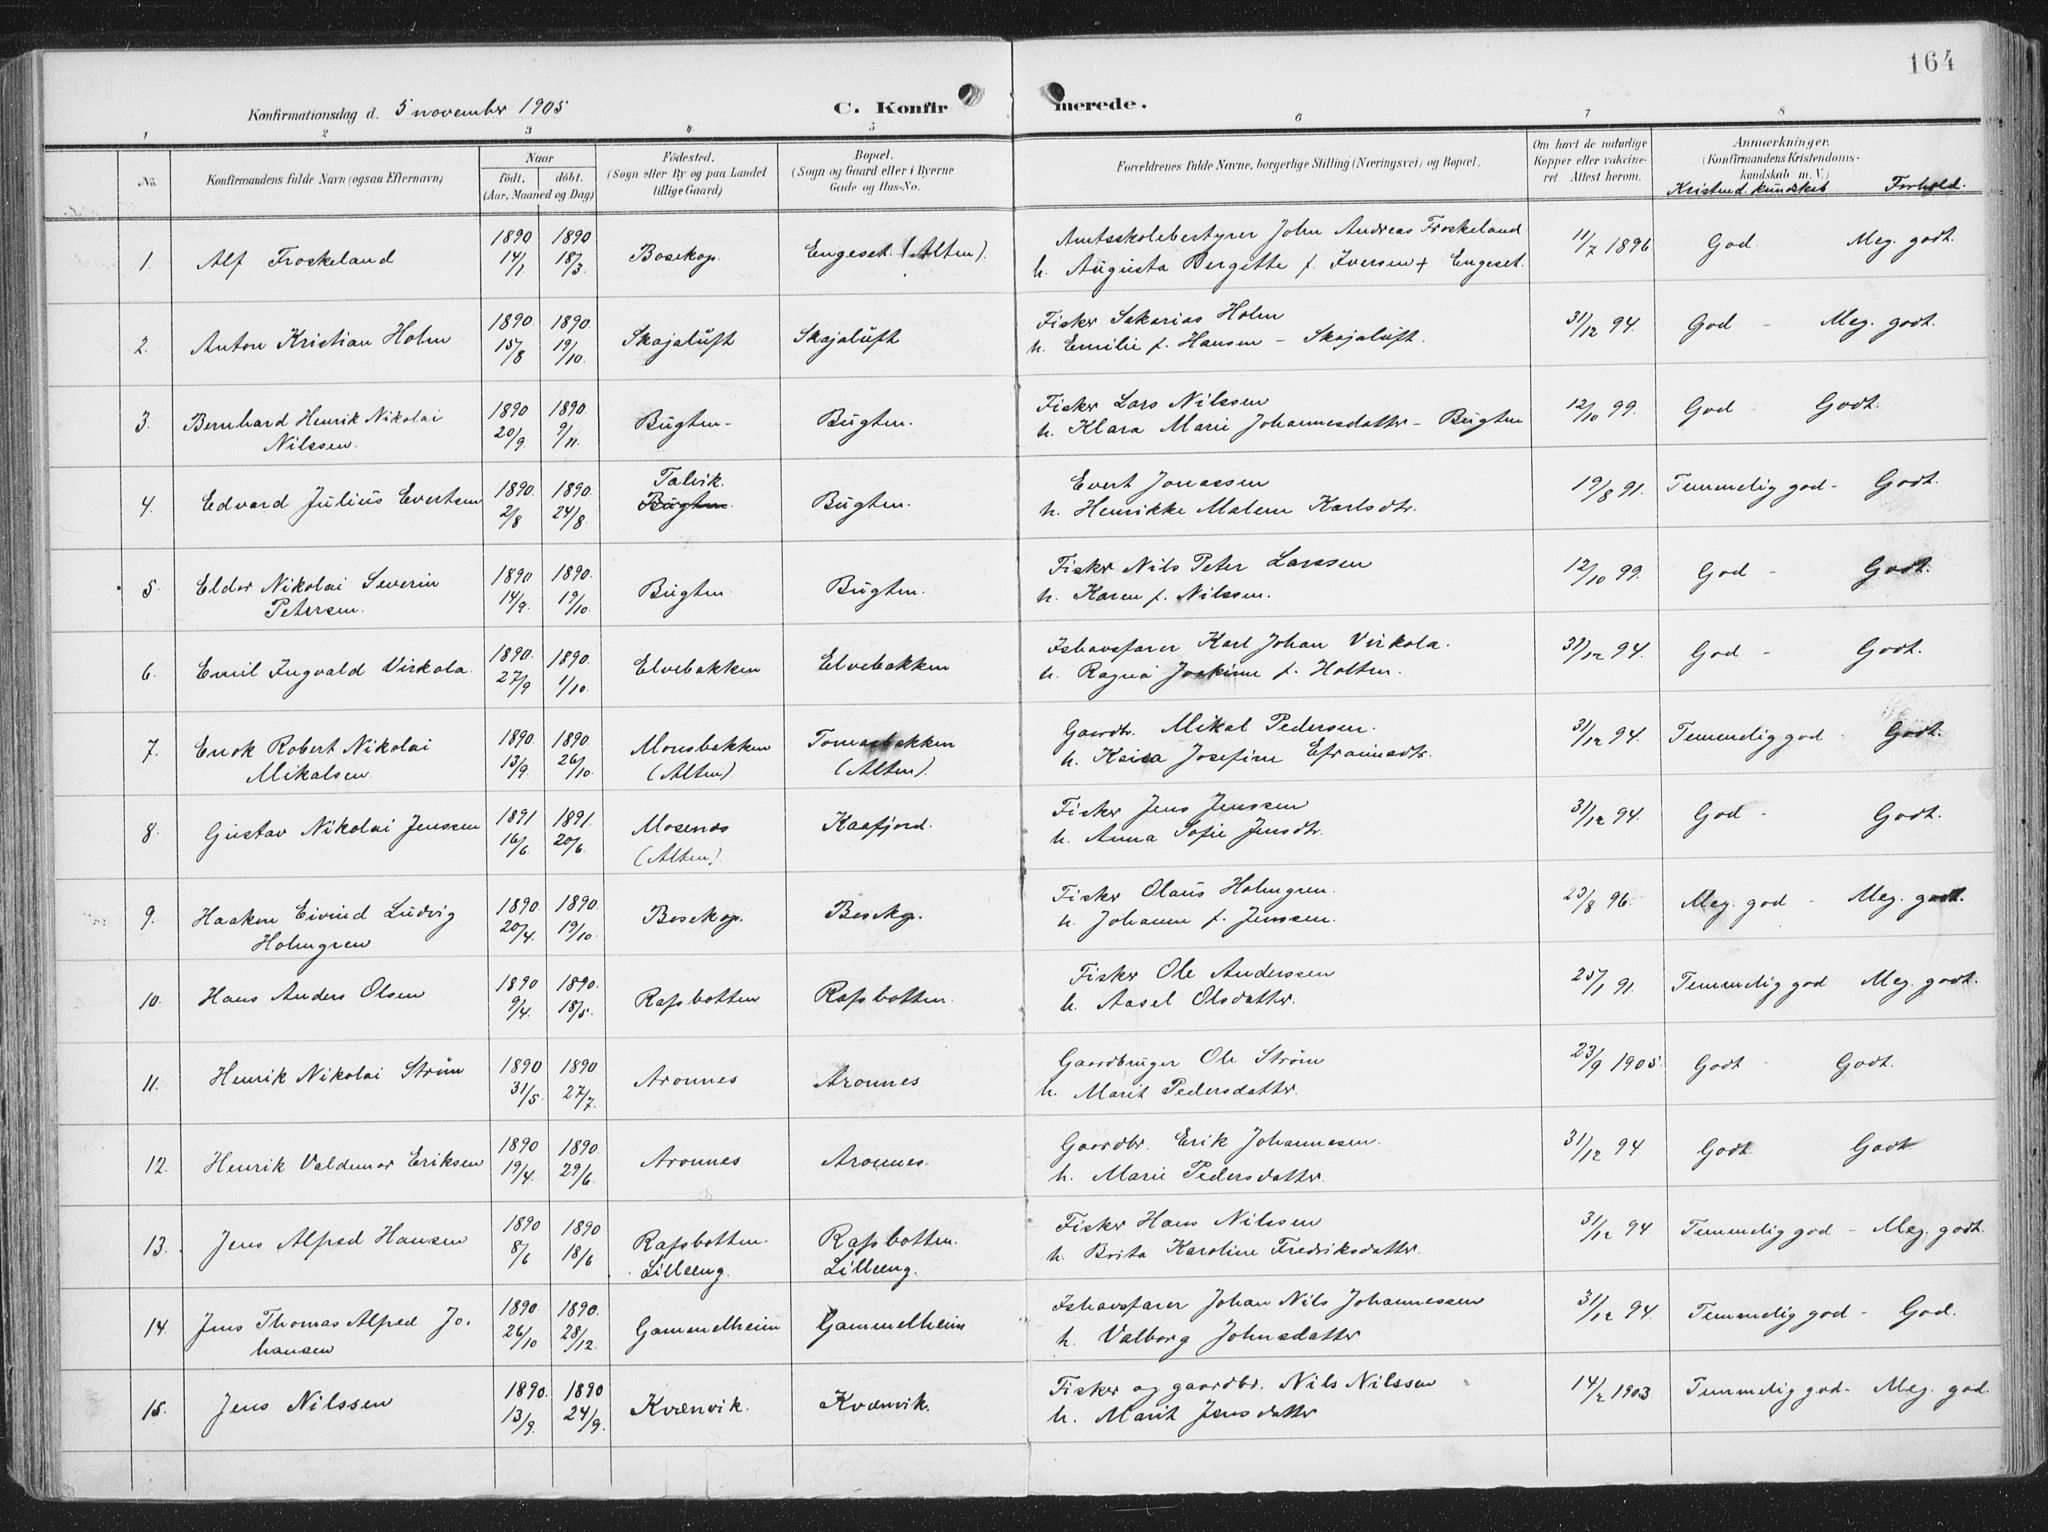 164
Konfirmationsdag d. 5 november 1905 C. Konfirmerede.
1 2 3 4 5 6 7 8
No. Konfirmandens fulde Navn (ogsaa Efternavn) Naar født. døbt. (Aar, Maaned og Dag) Fødested. (Sogn eller By og paa Landet tillige Gaard) Bopæl. (Sogn og Gaard eller i Byerne Gade og Hus-No. Forældrenes fulde Navne, borgerlige Stilling (Næringsvei) og Bopæl. Om havt de naturlige Kopper eller vaccineret Attest herom. Anmærkninger. (Konfirmandens Kristendomskundskab m. V.)
Kristend. kundskab Forhold.
1. Alf Froskeland 1890 14/1 1890 18/3. Bosekop. Engeset. (Alten). Amtsskolebestyrer John Andreas Froskeland 11/7 1896 God. Meg. godt.
h. Augusta Bergitte f. Iversen + Engeset.
2. Anton Kristian Holm 1890. 15/8 1890. 19/10. Skajaluft Skajaluft Fisker Sakarias Holm 31/12 94. God - Meg. godt.
h. Emilie f. Hansen - Skajaluft.
3. Bernhard Henrik Nikolai Nilssen. 1890 20/9 1890. 9/11. Bugten. Bugten. Fisker Lars Nilssen 12/10 99. God - Godt.
h. Klara Marie Johannesdatter - Bugten
4. Edvard Julius Evertsen 1890. 2/8 1890. 24/8. Talvik. Bugten. Bugten. Evert Jonassen 19/8 91. Temmelig god - Godt.
h. Henrikke Malene Karlsdtr.
5. Eldor Nikolai Severin Petersen. 1890 14/9. 1890. 19/10. Bugten. Bugten. Fisker Nils Peter Larssen 12/10 99. God - Godt.
h. Karen f. Nilssen.
6. Emil Ingvald Virkola. 1890. 27/9 1890. 1/10. Elvebakken Elvebakken Ishavsfarer Karl Johan Virkola. 31/12 94. God - Godt.
h. Ragna Joakime f. Holten.
7. Enok Robert Nikolai Mikalsen. 1890. 13/9. 1890 26/10. Monsbakken (Alten). Tomasbakken (Alten). Gaardbr. Mikal Pedersen. 31/12 94. Temmelig god - Godt.
h. Kaisa Josefine Efraimsdtr.
8. Gustav Nikolai Jenssen 1891 16/6. 1891. 20/6. Mosenes (Alten). Kaafjord. Fisker Jens Jenssen 31/12 94. God - Godt.
h. Anna Sofie Jensdtr.
9. Haakon Eivind Ludvig Holmgren 1890 20/4. 1890. 19/10. Bosekop. Bosekop. Fisker Olaus Holmgren. 23/8 96. Meg. god - Meg. godt.
h. Johanne f. Jenssen.
10. Hans Anders Olsen 1890 9/4. 1890. 18/5. Rafsbotten Rafsbotten. Fisker Ole Anderssen 25/1 91. Temmelig god Meg. godt.
h. Aasel Olsdatter.
11. Henrik Nikolai Strøm 1890 31/5. 1890 27/7. Aronnes Aronnes Gaardbruger Ole Strøm 23/9 1905. Godt - Godt.
h. Marit Pedersdatter.
12. Henrik Valdemar Eriksen 1890 19/4 1890. 29/6. Aronnes Aronnes. Gaardbr. Erik Johannesen. 31/12 94 Godt Godt
h. Marie Pedersdatter.
13. Jens Alfred Hansen 1890 8/6 1890 18/6 Rafsbotten. Lilleeng. Rafsbotten. Lilleeng. Fisker Hans Nilssen 31/12 94. Temmelig god - Meg. godt.
h. Brita Karoline Fredriksdatter.
14. Jens Thomas Alfred Johansen 1890 26/10 1890. 28/12. Gammelheim Gammelheim Ishavsfarer Johan Nils Johannessen 31/12 94. Temmelig god - God.
h. Valborg Johnsdatter
15. Jens Nilssen 1890. 13/9. 1890 24/9. Kvænvik. Kvænvik. Fisker og gaardbr. Nils Nilssen 14/2 1903 Temmelig god - Meg. god.
h. Marit Jensdatter